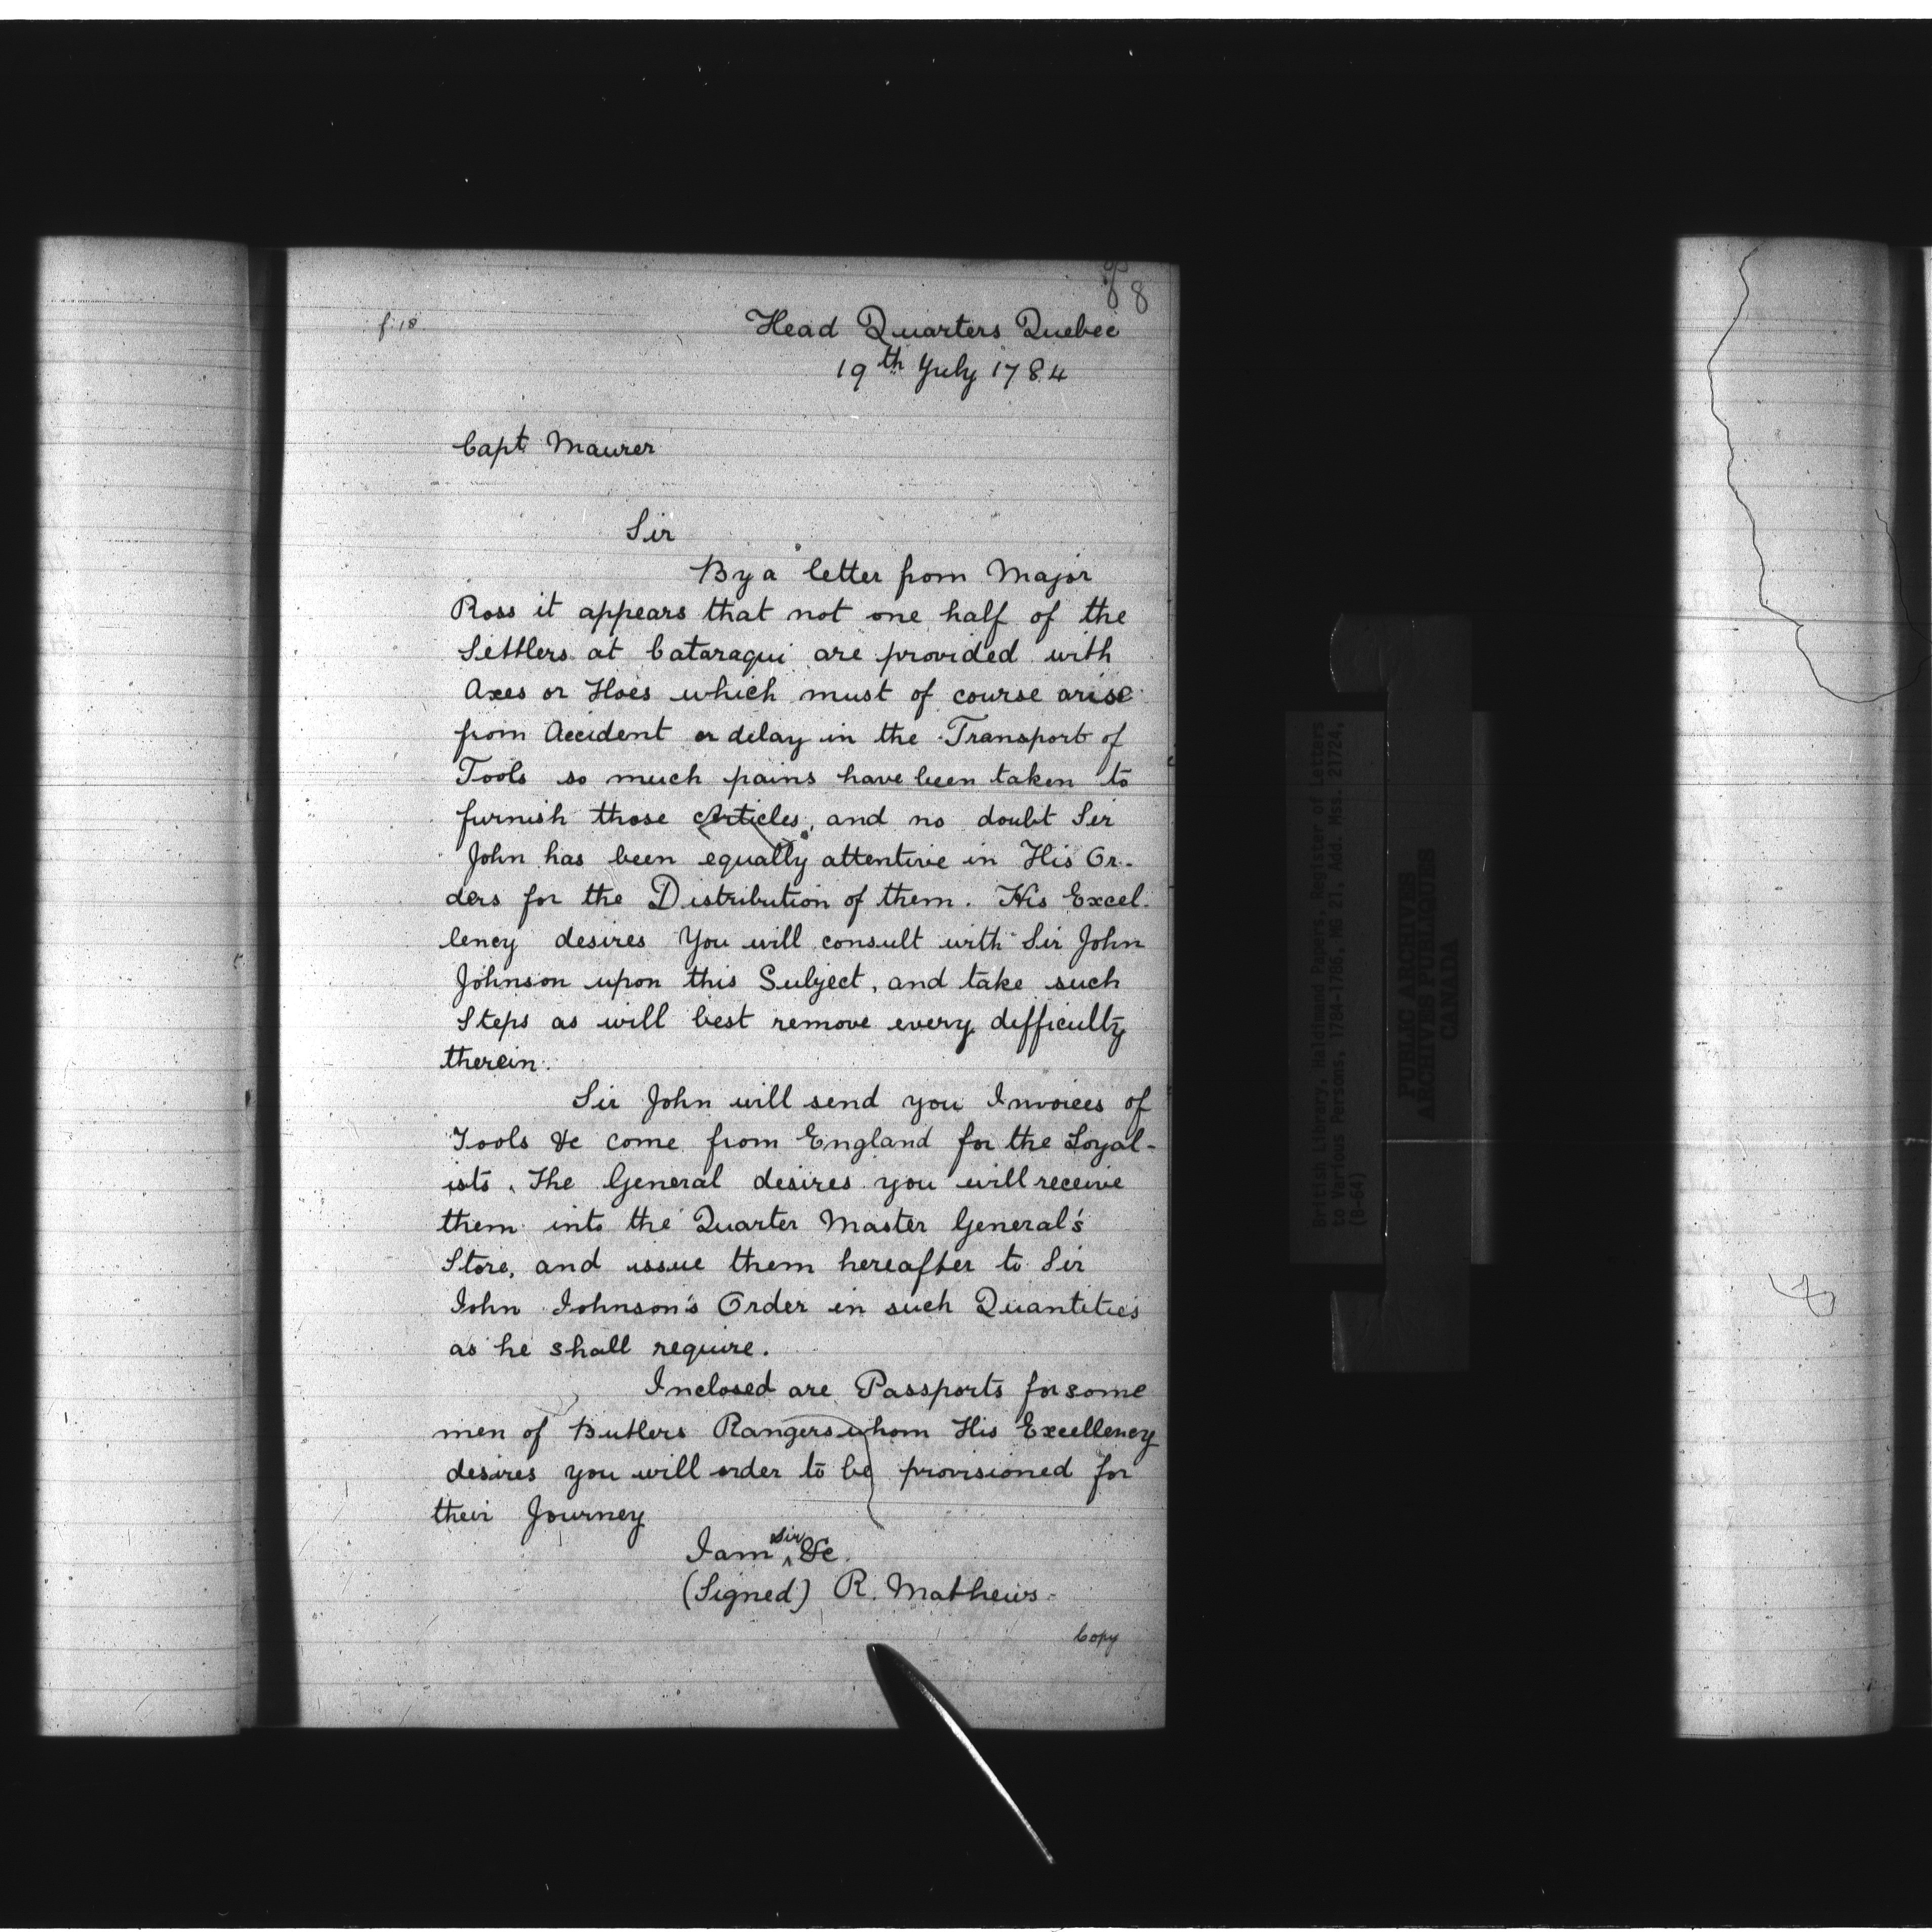 8
f. 18.
Head Quarters Quebec
19th July 1784
Capt Maurer
Sir
By a letter from Major
Ross it appears that not one half of the
Settlers at Cataraqui are provided with
Axes or Hoes which must of course arise
from Accident or delay in the Transport of
Tools so much pains have been taken to
furnish those Articles, and no doubt Sir
John has been equally attentive in His Or-
ders for the Distribution of them. His Excel-
lency desires You will consult with Sir John
Johnson upon this Subject, and take such
Steps as will best remove every difficulty
therein.
Sir John will send you Invoices of
Tools &c come from England for the Loyal-
ists. The General desires you will receive
them into the Quarter Master General's
Store, and issue them hereafter to Sir
John Johnson's Order in such Quantities
as he shall require.
Inclosed are Passports for some
men of Butlers Rangers whom His Excellency
desires you will order to be provisioned for
their Journey
I am Sir &c.
(Signed) R. Mathews
Copy
British Library, Haldimand Papers, Register of Letters
to Various Persons, 1784-1786, MG 21, Add. Mss. 21724,
(B-64)
PUBLIC ARCHIVES
ARCHIVES PUBLIQUES
CANADA